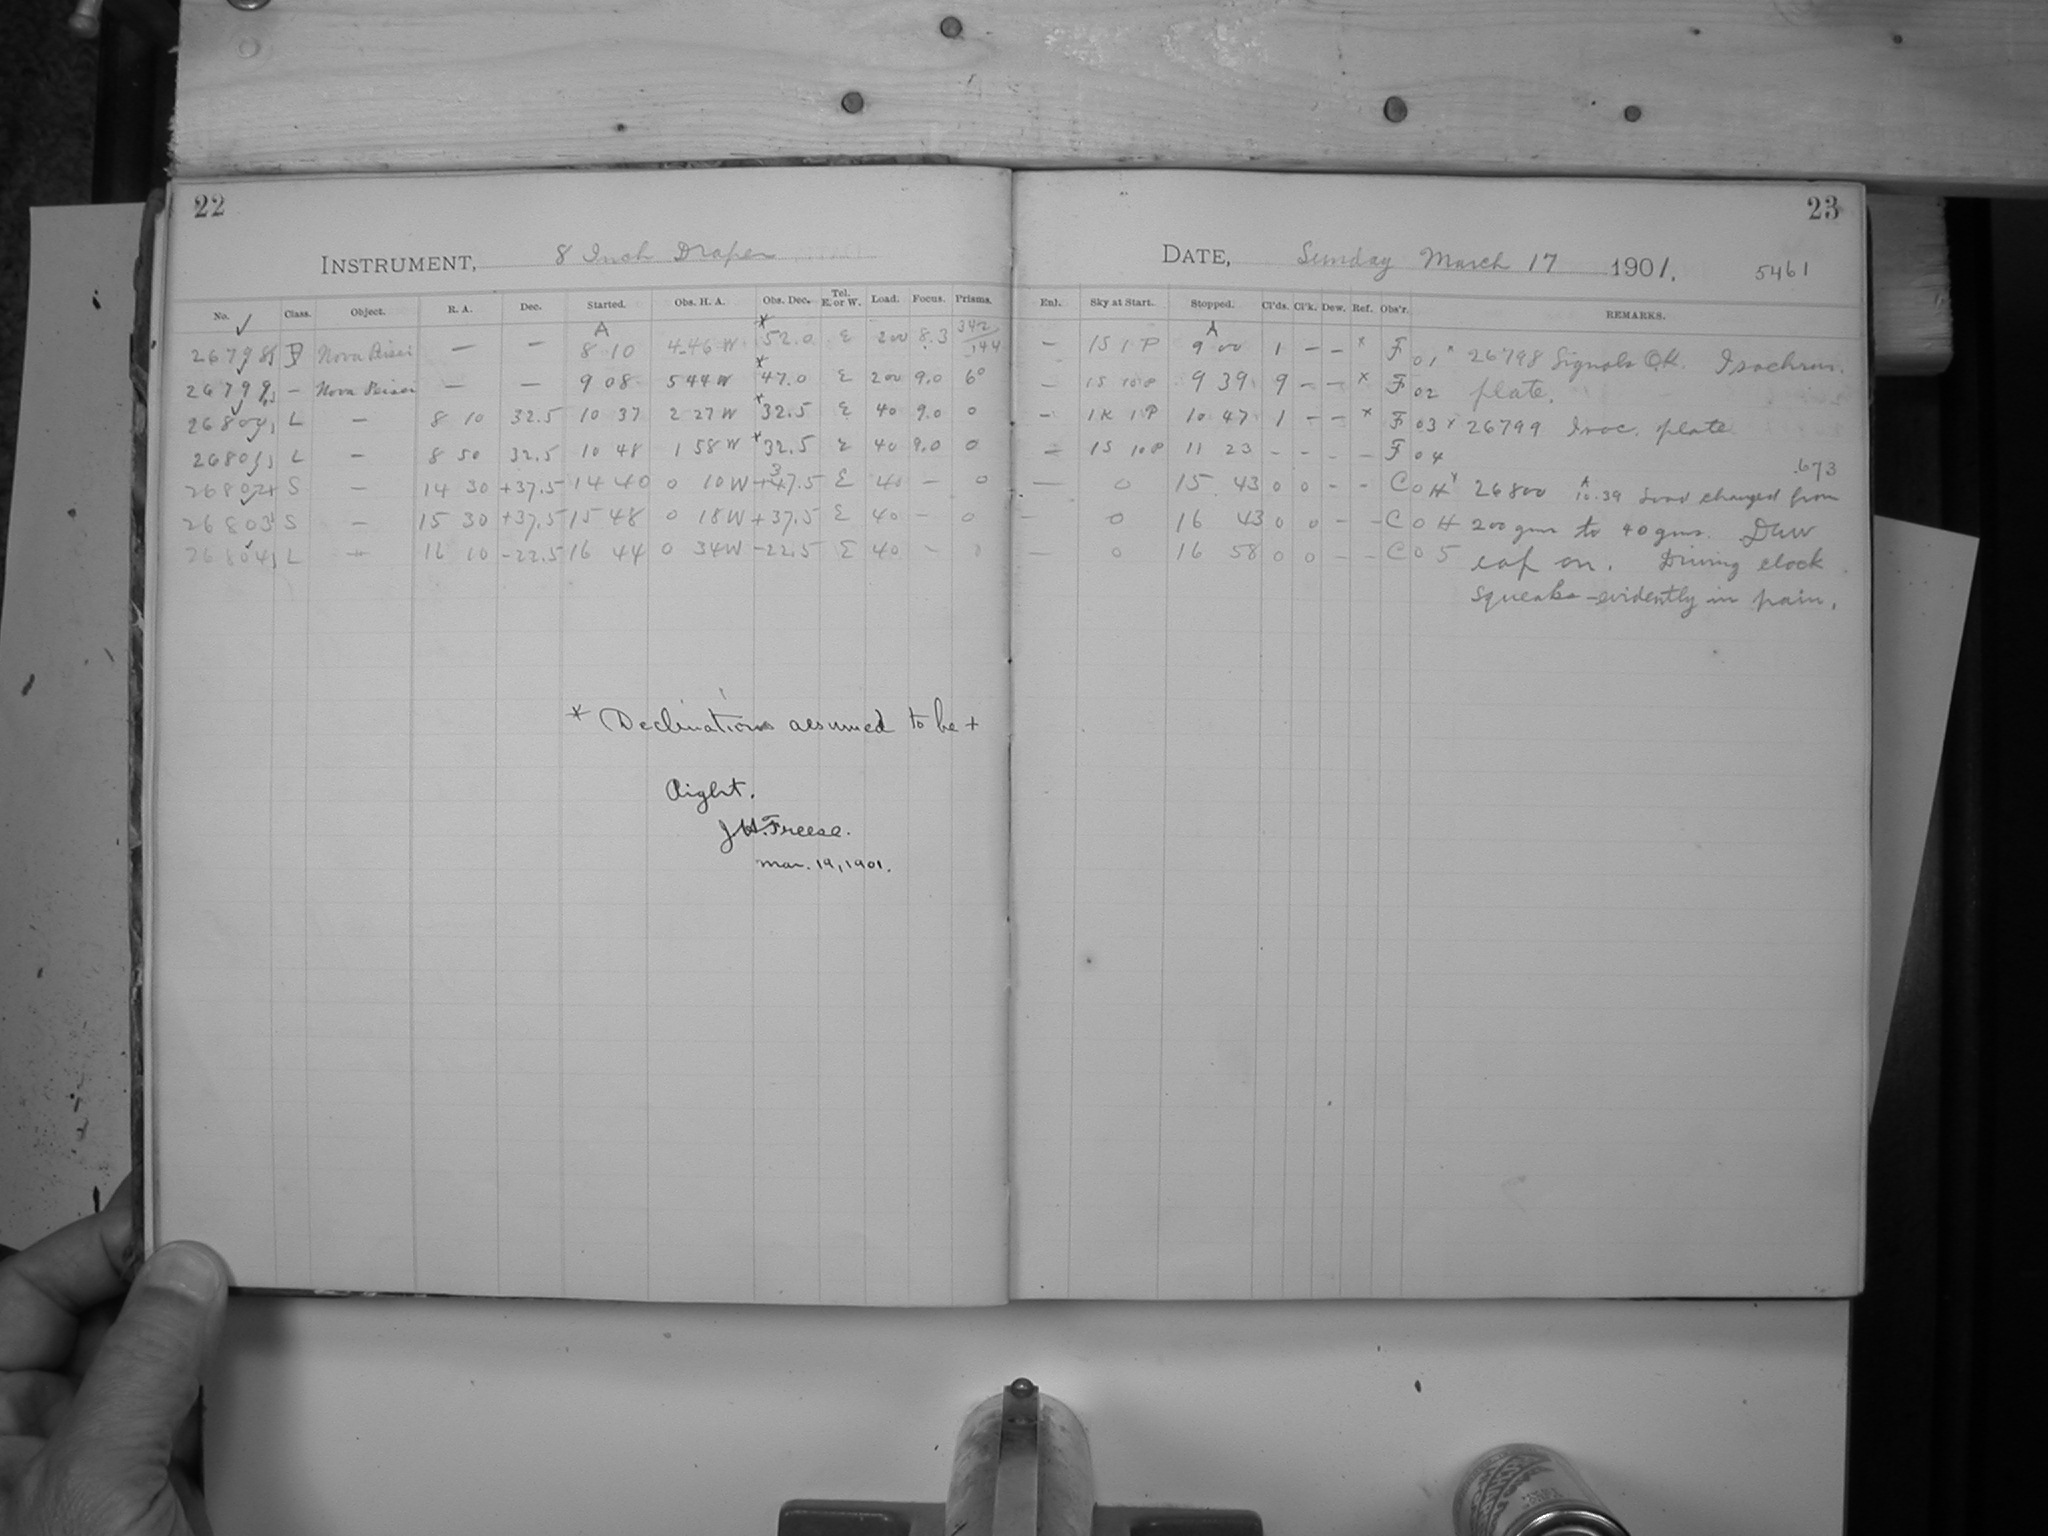 22
23
INSTRUMENT, 8 Inch Draper
DATE, Sunday March 17 1901. 5461
No. Class. Object. R. A. Dec. Started. Obs. H. A. Obs. Dec. Tel. E. or W. Load. Focus. Prisms. Enl. Sky at Start. Stopped. Cl'ds. Cl'k. Dew. Ref. Obs'r. REMARKS.
26798 Nova Persei — — A 8 10 4.46 W * 52.0 E 200 8.3 — 1S 1P A 9 00 1 — — x F 01
26799 — Nova Persei — — 9 08 5 44 W * 47.0 E 200 9.0 6° — 1S 10P 9 39 9 — — x F 02
26800 L — 8 10 32.5 10 37 2 27 W * 32.5 E 40 9.0 0 — 1K 1P 10 47 1 — — x F 03
26801 L — 8 50 32.5 10 48 1 58 W * 32.5 E 40 9.0 0 — 1S 10P 11 23 - - - - F 04
26802 S — 14 30 +37.5 14 40 0 10 W +37.5 E 40 — 0 — 0 15 43 0 0 - - C 0 H
26803 S — 15 30 +37.5 15 48 0 18 W +37.5 E 40 — 0 — 0 16 43 0 0 - - C 0 H
26804 L — 16 10 -22.5 16 44 0 34 W -22.5 E 40 - 0 — 0 16 58 0 0 - - C 0 5
x 26798 Signals OK. Isochrom.
plate.
x 26799 Isoc. plate
.673
x 26800 A 10.39 Load changed from
200 gms to 40 gms. Dew
cap on. Driving clock
squeaks - evidently in pain.
* Declinations assumed to be +
Right.
J.H. Freese.
Mar. 19, 1901.